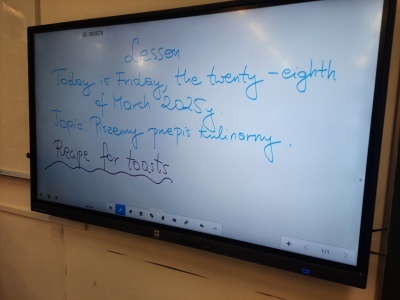 Lesson
Today is Friday, the twenty-eighth
of March 2025y.
Topic: Piszemy przepis kulinarny.
Recipe for toasts
1/1